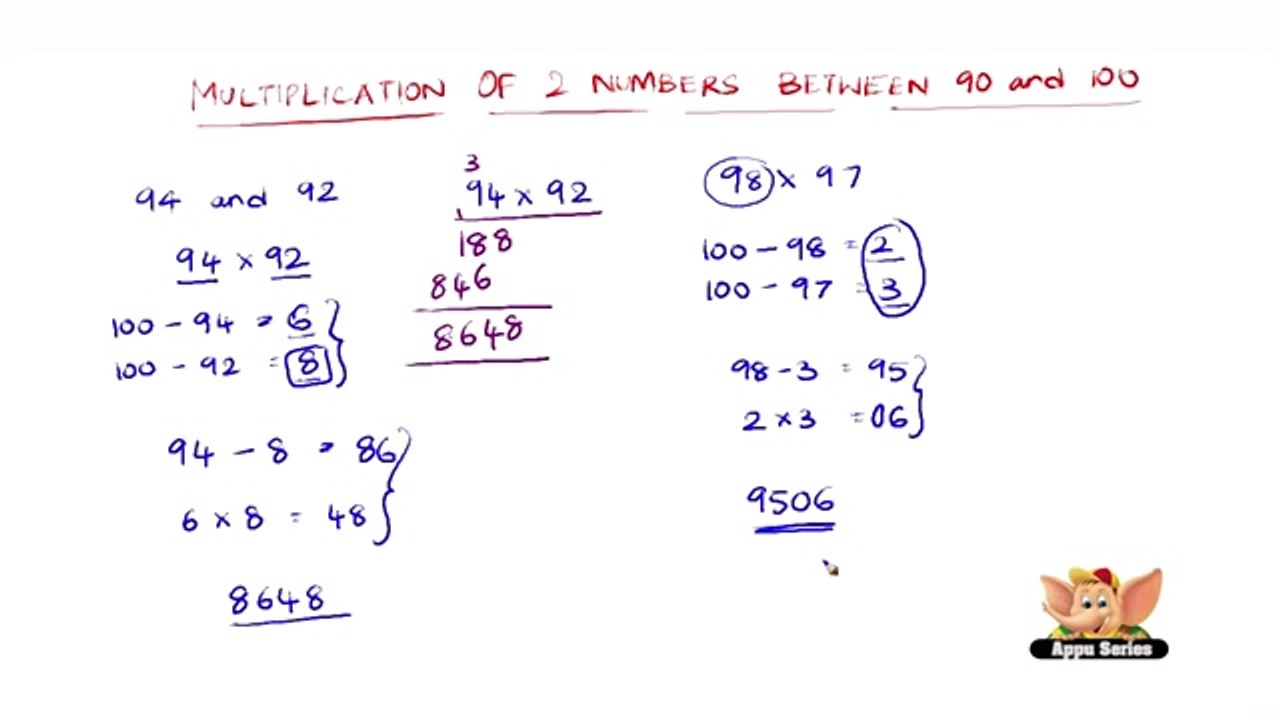 MULTIPLICATION OF 2 NUMBERS BETWEEN 90 and 100
94 and 92
94 × 92
100 - 94 = 6
100 - 92 = 8
94 - 8 = 86
6 × 8 = 48
8648
3
94 × 92
188
846
8648
98 × 97
100 - 98 = 2
100 - 97 = 3
98 - 3 = 95
2 × 3 = 06
9506
Appu Series